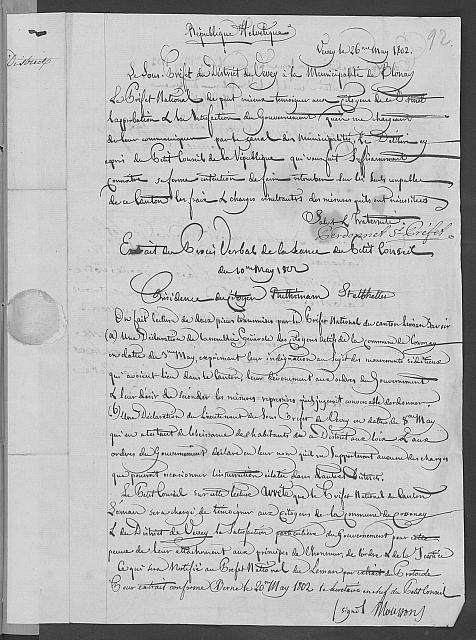 92.
République Helvétique
District
Vevey le 26me May 1802.
Le Sous-Préfet du District de Vevey à la Municipalité de Blonay
Le Préfet National ne peut mieux témoigner aux Citoyens de ce District
l'approbation & la Satisfaction du Gouvernement, qu'en me chargeant
de leur communiquer par le canal des Municipalités, la Décision cy
après du Petit Conseil de la République qui vous fait suffisamment
connaitre sa ferme intention de faire retomber sur les seuls coupables
de ce Canton les frais & charges resultantes des mesures qu'ils ont nécessitées
Salut & Fraternité
Perdonnet S. Préfet
Extrait du Procès Verbal de la Séance du Petit Conseil
du 10me May 1802
Présidence du Citoyen Ruttimann Statthalter
On fait lecture de deux pièces transmises par le Préfet National du canton Léman savoir
(a) Une Déclaration de l'assemblée Générale des Citoyens actifs de la commune de
en datte du 5me May, exprimant leur indignation au sujet des mouvements séditieux
qui avoient lieu dans le Canton, leur dévouement aux ordres du Gouvernement
& leur désir de seconder les mesures repressives qu'il jugeroit convenable d'ordonner.
(b) Une Déclaration du Lieutenant du Sous Préfet de Vevey en datte du 8me May
qui en attestant de l'obeissance des habitants de ce District aux loix & aux
ordres du Gouvernement déclare en leur nom qu'ils ne supporteront aucune des charges
que pourroit occasionner l'insurrection éclatée dans d'autres Districts.
Le Petit Conseil sur cette lecture arrête que le Préfet National du Canton
Léman sera chargé de témoigner aux citoyens de la Commune de
& du District de Vevey la satisfaction particulière du Gouvernement pour cette
preuve de leur attachement aux principes de l'honneur, de l'ordre & de la Justice
Ce qui sera Notifié au Préfet National du Léman par extrait du Protocole
Pour extrait conforme Berne le 20me May 1802. le Secretaire en chef du Petit Conseil
(signé) Mousson